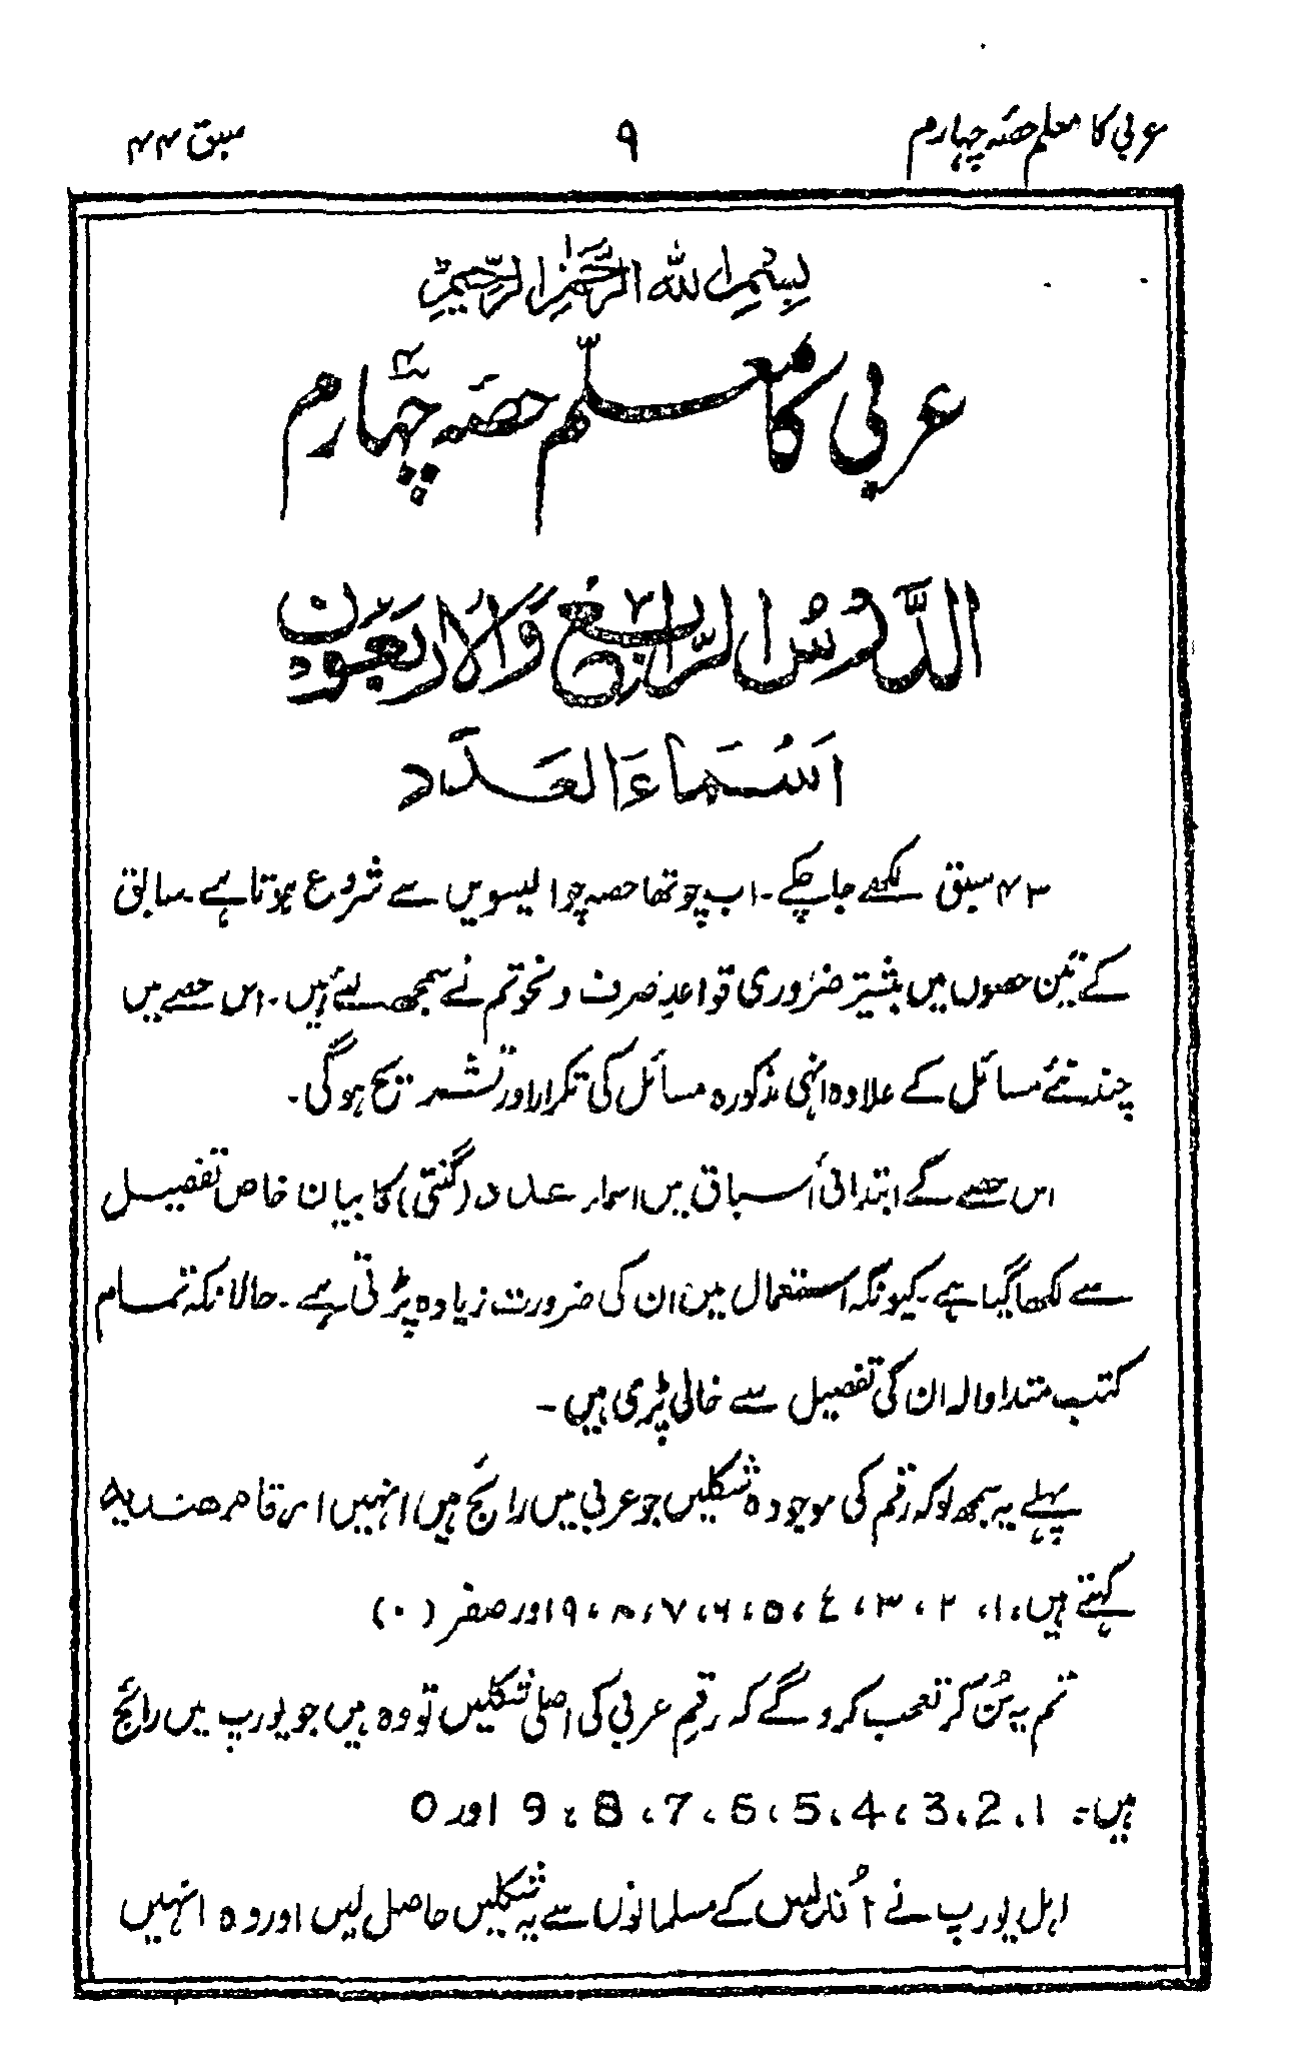 عربی کا معلم حصّہ چہارم ۹ سبق ۴۴
بِسْمِ اللهِ الرَّحْمٰنِ الرَّحِيْمِ
عربی کا معلّم حصّہ چہارم
الدَّرْسُ الرَّابِعُ وَالْاَرْبَعُوْنَ
اَسْمَاءُ الْعَدَد
۴۳ سبق لکھے جا چکے۔ اب چوتھا حصہ چوالیسویں سے شروع ہوتا ہے۔ سابق
کے تین حصوں میں بیشتر ضروری قواعدِ صرف و نحو تم نے سمجھ لئے ہیں۔ اس حصے میں
چند نئے مسائل کے علاوہ انہی مذکورہ مسائل کی تکرار اور تشریح ہوگی۔
اس حصے کے ابتدائی اسباق میں اسماء عدد (گنتی) کا بیان خاص تفصیل
سے لکھا گیا ہے۔ کیونکہ استعمال میں ان کی ضرورت زیادہ پڑتی ہے۔ حالانکہ تمام
کتب متداولہ ان کی تفصیل سے خالی پڑی ہیں۔
پہلے یہ سمجھ لو کہ رقم کی موجودہ شکلیں جو عربی میں رائج ہیں انہیں ارقام ھندیہ
کہتے ہیں، ۱، ۲، ۳، ٤، ۵، ۶، ۷، ۸، ۹ اور صفر (۰)
تم یہ سُن کر تعجب کرو گے کہ رقمِ عربی کی اصلی شکلیں تو وہ ہیں جو یورپ میں رائج
ہیں۔ 1، 2، 3، 4، 5، 6، 7، 8، 9 اور 0
اہل یورپ نے اُندلس کے مسلمانوں سے یہ شکلیں حاصل لیں اور وہ انہیں